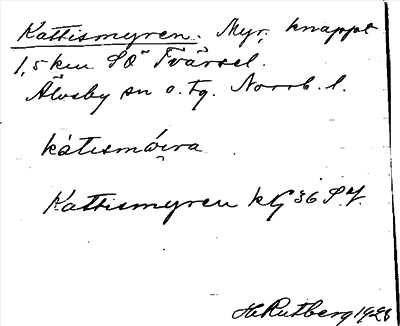 Kattismyren. Myr, knappt
1,5 km SO Tvärsel.
Älvsby sn o. tg. Norrb. l.
kátismýra
Kattismyren kG 36 S.4.
H Rutberg 1928